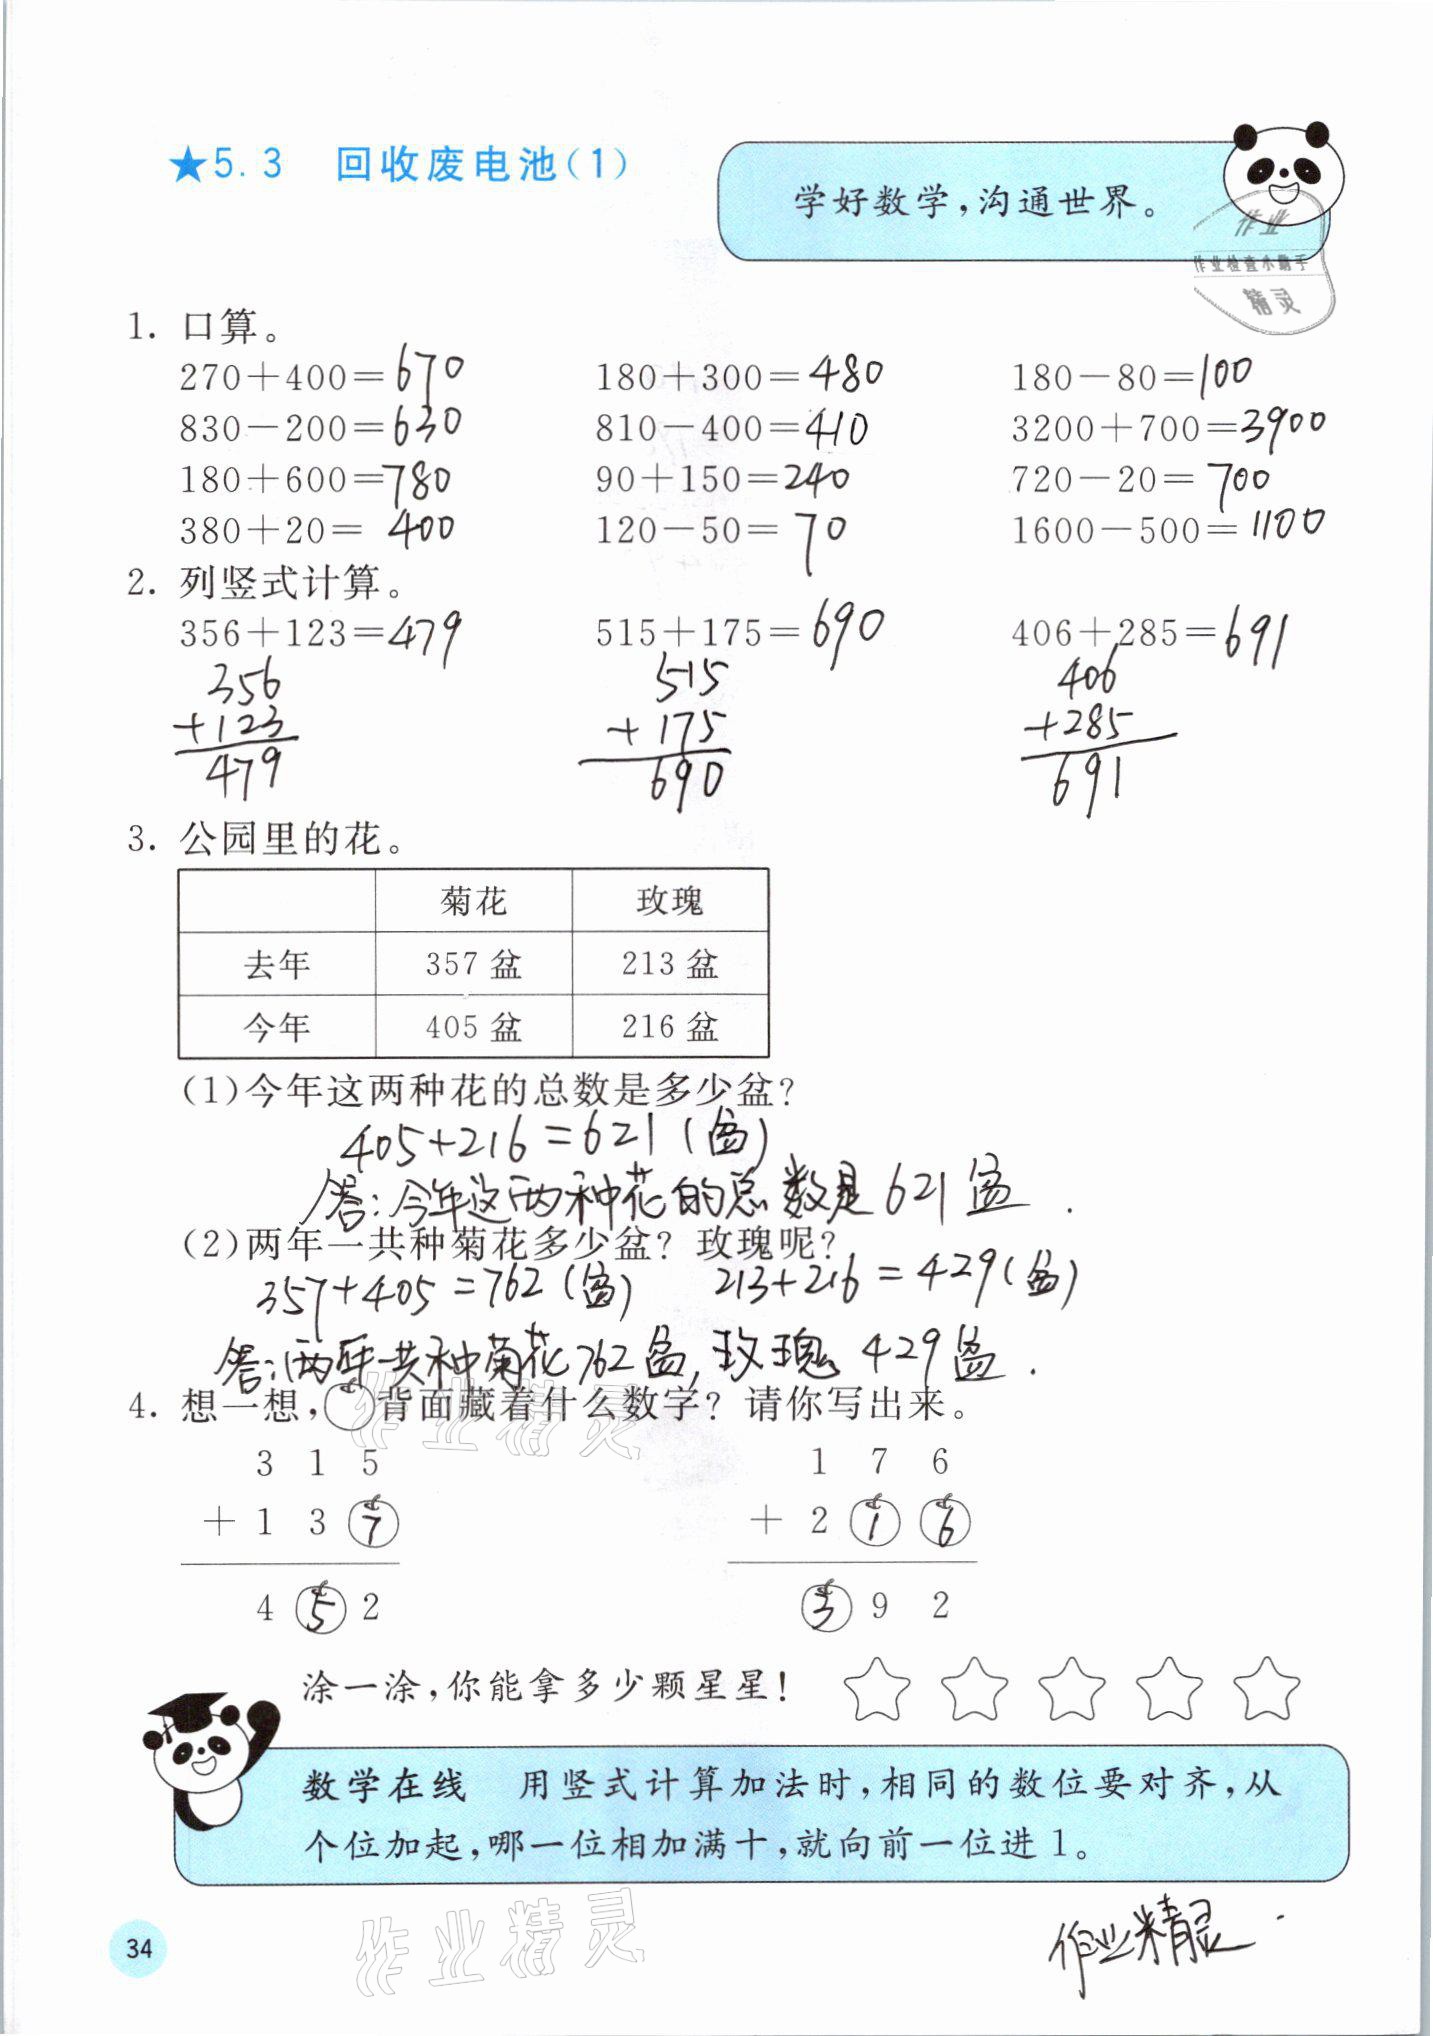 ★5.3 回收废电池(1)
学好数学,沟通世界。
作业
作业检查小助手
精灵
1. 口算。
270+400=670 180+300=480 180-80=100
830-200=630 810-400=410 3200+700=3900
180+600=780 90+150=240 720-20=700
380+20=400 120-50=70 1600-500=1100
2. 列竖式计算。
356+123=479 515+175=690 406+285=691
356 515 406
+123 +175 +285
479 690 691
3. 公园里的花。
菊花 玫瑰
去年 357盆 213盆
今年 405盆 216盆
(1)今年这两种花的总数是多少盆?
405+216=621(盆)
答:今年这两种花的总数是621盆.
(2)两年一共种菊花多少盆?玫瑰呢?
357+405=762(盆) 213+216=429(盆)
答:两年一共种菊花762盆,玫瑰429盆.
4. 想一想, 背面藏着什么数字?请你写出来。
作业精灵
3 1 5 1 7 6
+ 1 3 7 + 2 1 6
4 5 2 3 9 2
涂一涂,你能拿多少颗星星!
数学在线 用竖式计算加法时,相同的数位要对齐,从
个位加起,哪一位相加满十,就向前一位进1。
作业精灵
作业精灵
34